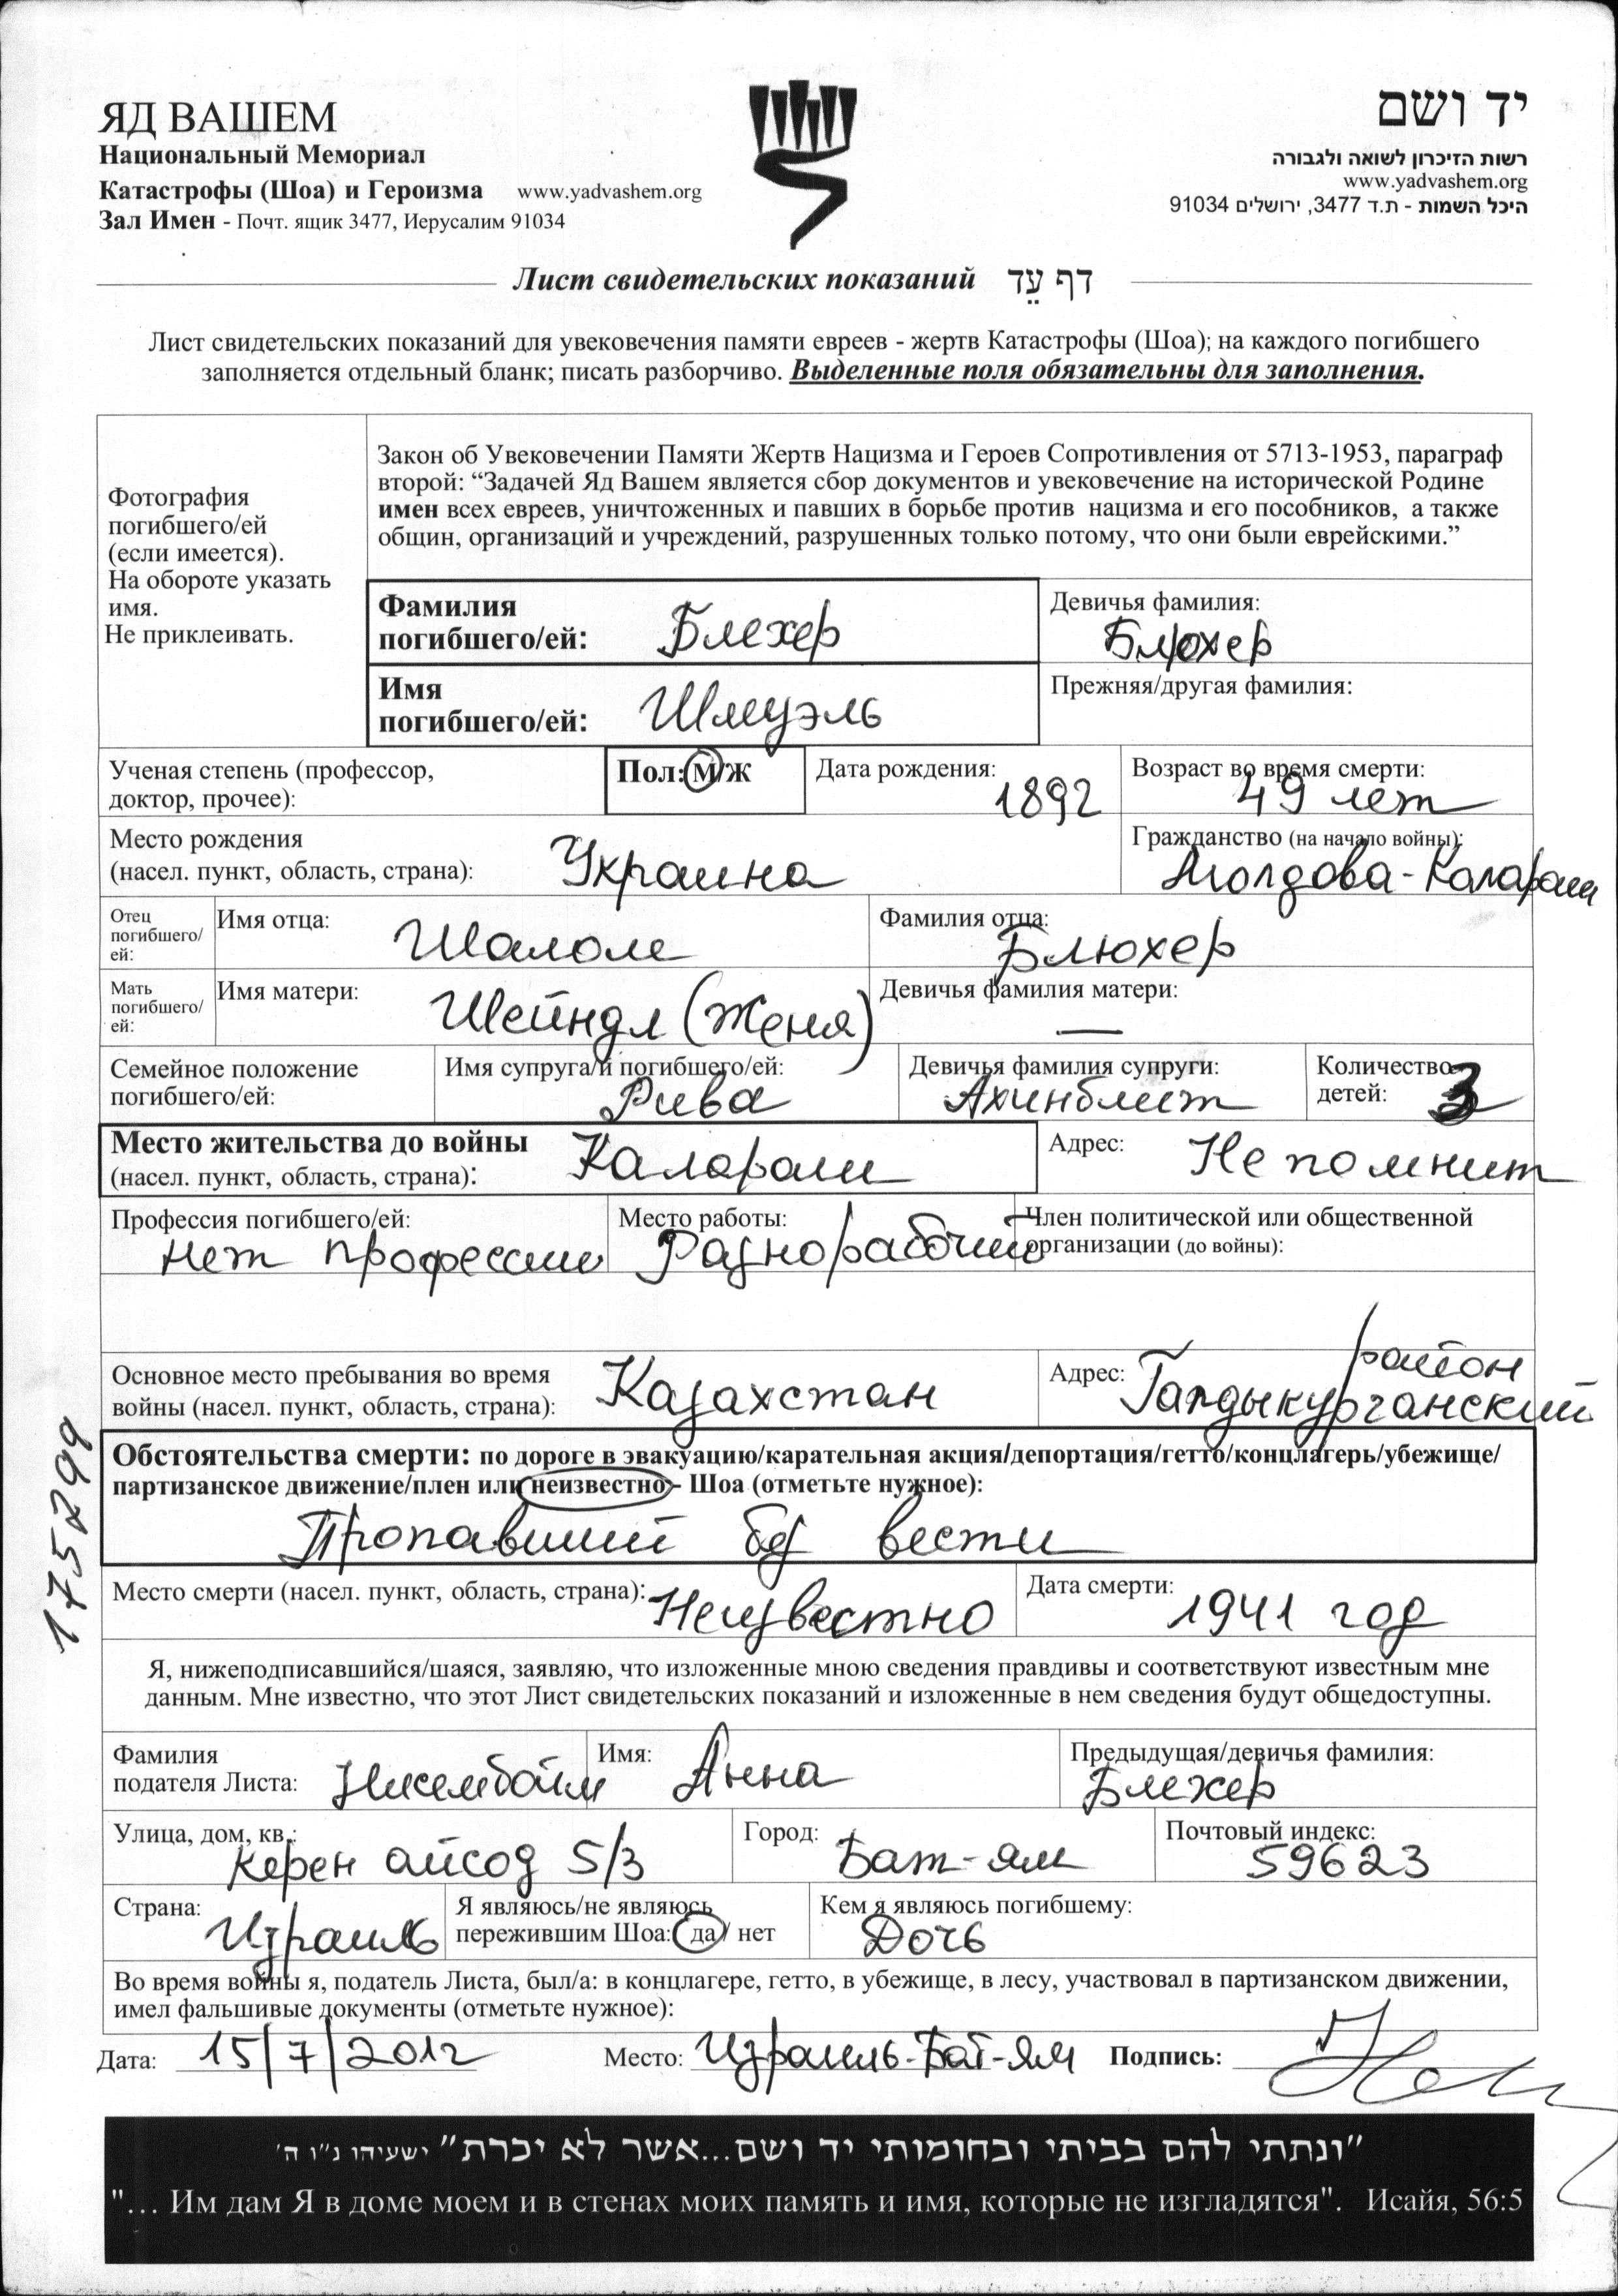 ЯД ВАШЕМ
Национальный Мемориал
Катастрофы (Шоа) и Героизма www.yadvashem.org
Зал Имен - Почт. ящик 3477, Иерусалим 91034
יד ושם
רשות הזיכרון לשואה ולגבורה
www.yadvashem.org
היכל השמות - ת.ד 3477, ירושלים 91034
Лист свидетельских показаний דף עֵד
Лист свидетельских показаний для увековечения памяти евреев - жертв Катастрофы (Шоа); на каждого погибшего
заполняется отдельный бланк; писать разборчиво. Выделенные поля обязательны для заполнения.
Фотография
погибшего/ей
(если имеется).
На обороте указать
имя.
Не приклеивать.
Закон об Увековечении Памяти Жертв Нацизма и Героев Сопротивления от 5713-1953, параграф
второй: “Задачей Яд Вашем является сбор документов и увековечение на исторической Родине
имен всех евреев, уничтоженных и павших в борьбе против нацизма и его пособников, а также
общин, организаций и учреждений, разрушенных только потому, что они были еврейскими.”
Фамилия
погибшего/ей: Блехер
Девичья фамилия:
Блюхер
Имя
погибшего/ей: Шмуэль
Прежняя/другая фамилия:
Ученая степень (профессор,
доктор, прочее):
Пол: М/Ж
Дата рождения:
1892
Возраст во время смерти:
49 лет
Место рождения
(насел. пункт, область, страна): Украина
Гражданство (на начало войны):
Молдова-Калараш
Отец
погибшего/
ей:
Имя отца: Шалом
Фамилия отца:
Блюхер
Мать
погибшего/
ей:
Имя матери: Шейндл (Женя)
Девичья фамилия матери:
—
Семейное положение
погибшего/ей:
Имя супруга/и погибшего/ей:
Рива
Девичья фамилия супруги:
Ахинблит
Количество
детей: 3
Место жительства до войны
(насел. пункт, область, страна): Калараш
Адрес: Не помнит
Профессия погибшего/ей:
нет профессии
Место работы:
Разнорабочий
Член политической или общественной
организации (до войны):
Основное место пребывания во время
войны (насел. пункт, область, страна): Казахстан
Адрес: район
Талдыкурганский
Обстоятельства смерти: по дороге в эвакуацию/карательная акция/депортация/гетто/концлагерь/убежище/
партизанское движение/плен или неизвестно - Шоа (отметьте нужное):
Пропавший без вести
Место смерти (насел. пункт, область, страна): Неизвестно
Дата смерти:
1941 год
Я, нижеподписавшийся/шаяся, заявляю, что изложенные мною сведения правдивы и соответствуют известным мне
данным. Мне известно, что этот Лист свидетельских показаний и изложенные в нем сведения будут общедоступны.
Фамилия
подателя Листа: Нисембойм
Имя: Анна
Предыдущая/девичья фамилия:
Блехер
Улица, дом, кв.:
Керен айсод 5/3
Город: Бат-ям
Почтовый индекс:
59623
Страна:
Израиль
Я являюсь/не являюсь
пережившим Шоа: да / нет
Кем я являюсь погибшему:
Дочь
Во время войны я, податель Листа, был/а: в концлагере, гетто, в убежище, в лесу, участвовал в партизанском движении,
имел фальшивые документы (отметьте нужное):
Дата: 15/7/2012 Место: Израиль-Бат-Ям Подпись:
175299
"ונתתי להם בביתי ובחומותי יד ושם...אשר לא יכרת" ישעיהו נ"ו ה'
"... Им дам Я в доме моем и в стенах моих память и имя, которые не изгладятся". Исайя, 56:5